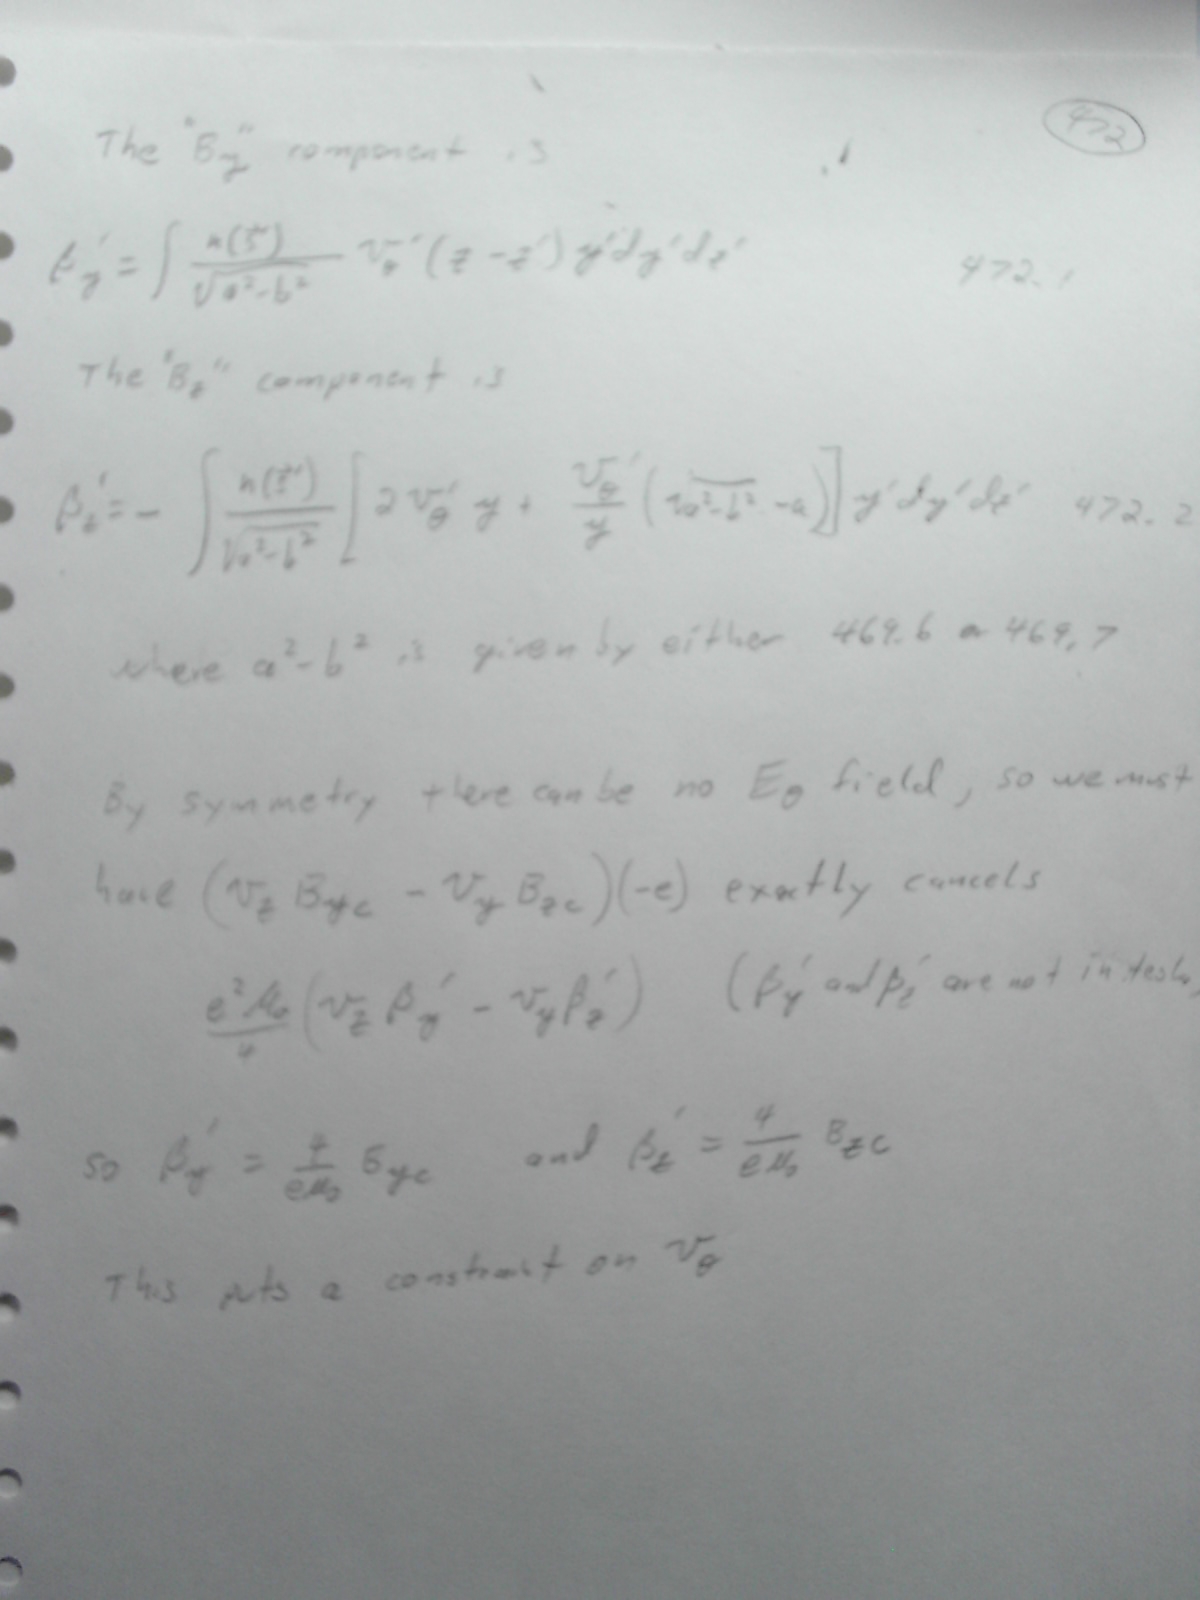 472
The "By" component is
βy' = ∫ n(ξ')/√(a²-b²) vθ' (z-z') y'dy'dz' 472.1
The "Bz" component is
βz' = - ∫ n(ξ')/√(a²-b²) [2 vθ' y + vθ'/y (√(a²-b²) - a)] y'dy'dz' 472.2
where a²-b² is given by either 469.6 or 469.7
By symmetry there can be no Eθ field, so we must
have (vz Byc - vy Bzc)(-e) exactly cancels
e²μ₀/4 (vz βy' - vy βz') (βy' and βz' are not in tesla)
so βy' = 4/eμ₀ Byc and βz' = 4/eμ₀ Bzc
This puts a constraint on vθ